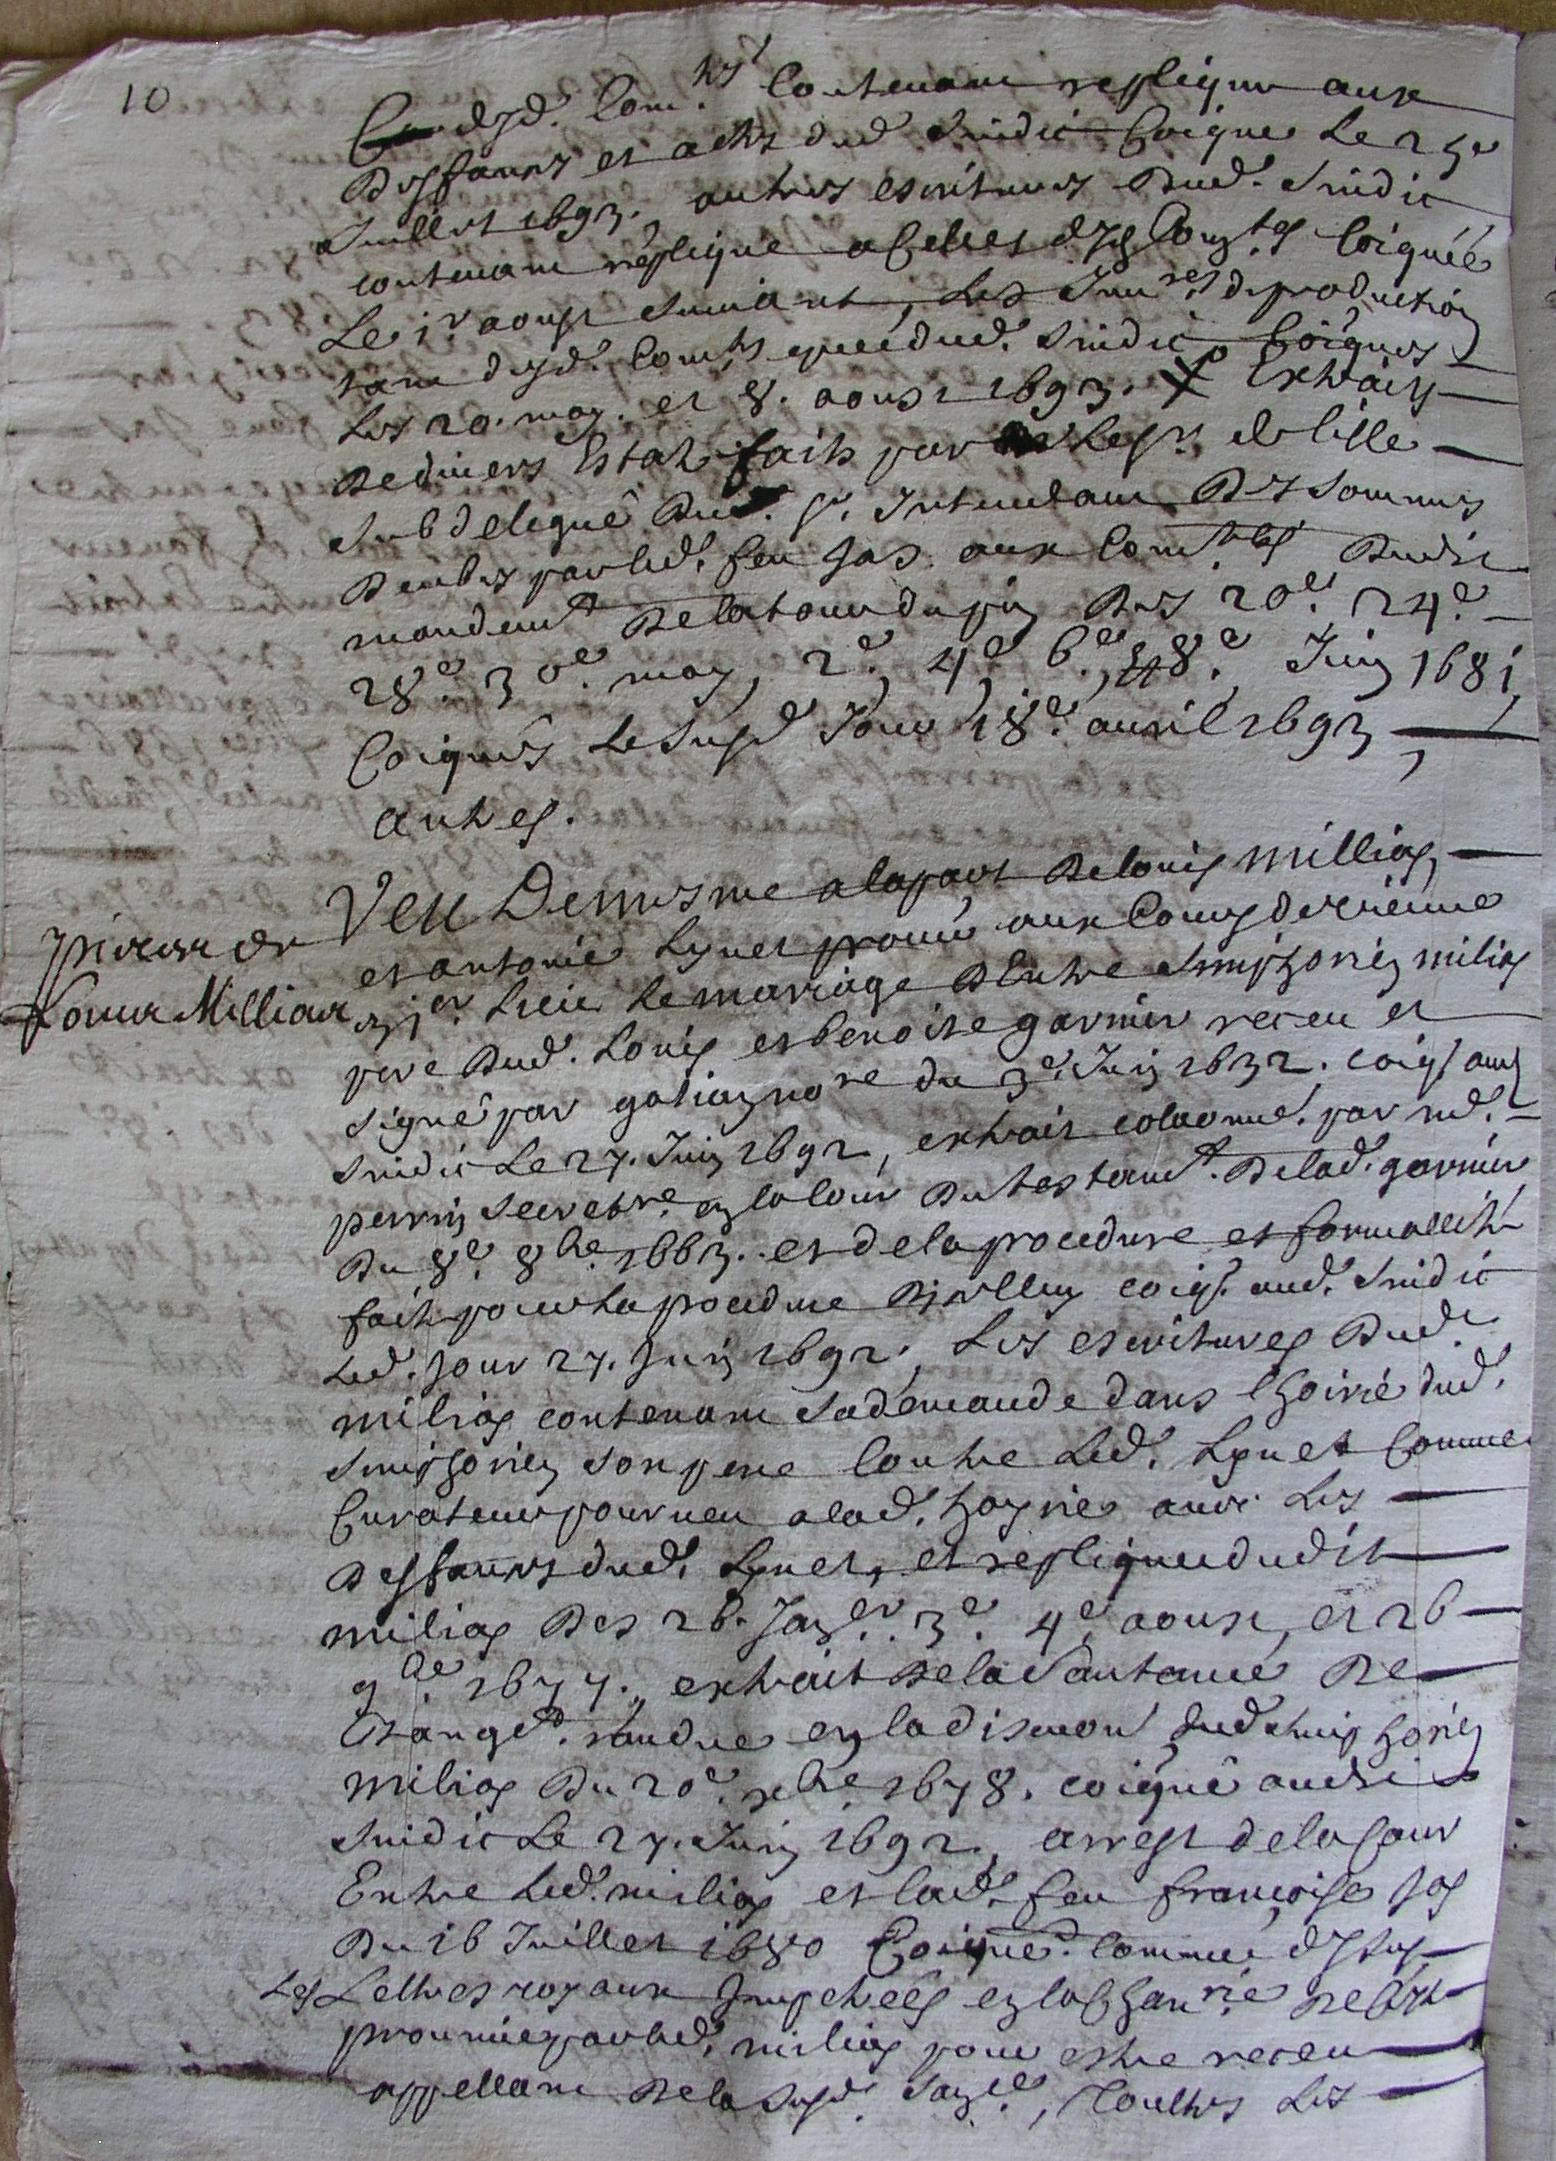 10
desd. Com.tés Contenant replique aux
Deffances et actes dud Sindic Coigne Le 25e
Juillet 1693., autres escritures Dud. Sindic
contenant replique a Celles desd Comtes Coignée
Le 1r aoust Suivant, Les Inures de production
tant desd. Comtés que dud. Sindic Coignes
Les 20. may. et 8. aoust 1693. Extraits
De divers Estats faits par Le sr. de lisle
Subdelegué Dud. sr. Intendant Des Sommes
Deubes par led. feu Jas aux Comtes Dudit
mandemt De la tour du pin Des 20e. 24e.
28e. 30e. may, 2e. 4e. 6e., et 8e. Juin 1681,
Coignés Le Susd Jour 18e. avril 1693,
autres.
Pieces de
Louis Milliat
Veu De mesme a la part De Louis millias,
et antoine Lynet procur aux Cours de vienne
Le mariage D'Entre Simphorien milias
pere Dud. Louis et benoite garnier receu et
signé par galian nore du 3e. Juin 1632. coigs aud
Sindic Le 27. Juin 1692, extrait colaonné. par me.
perrin Secretre. en la Cour Du testamt. De lad. garnier
Du 8e. 8bre. 1663. et de la procedure et formallité
faite pour la procedure coigs. aud. Sindic
Led. Jour 27. Juin 1692, Les escritures Dudt
milias contenant Sa demande dans l'hoirie dud.
Simphorien Son pere Contre Led. Lynet Comme
Curateur pourveu a lad. hoyrie avec Les
Deffances dud. Lynet, et replique dudit
milias Des 26. Janer. 3e. 4e. aoust, et 26
9bre. 1677., extrait De la Santance De
rangt. randue en la discuon dud Simphorien
milias Du 20e. xbre. 1678. coigné audit
Sindic Le 27. Juin 1692, arrest de la Cour
Entre Led. milias et lad. feu francoise Jas
Du 16 Juillet 1680 Coigné. Comme dessus
Les Lettres royaux Impetrées en la Chanrie De Cette
province par led. milias pour estre receu
appellant De la Susd. Sance., Toultes Les